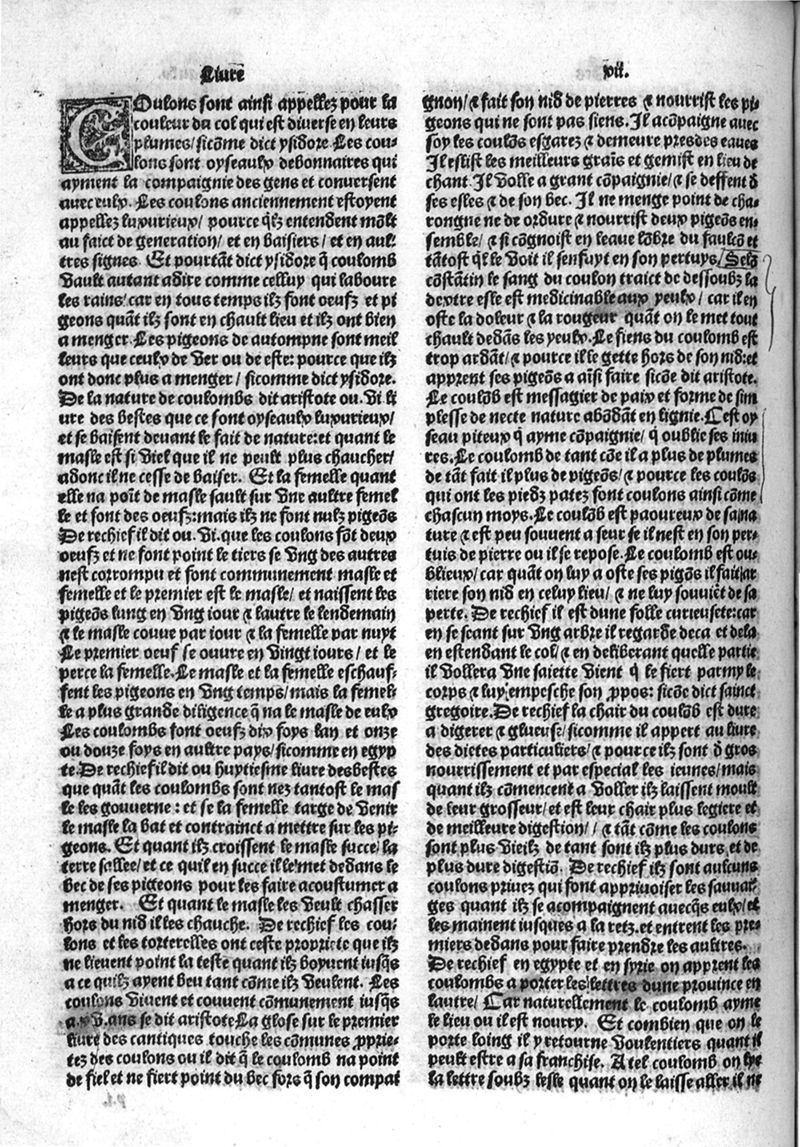 Liure
xii.
COulons sont ainsi appellez pour la
couleur du col qui est diuerse en leurs
plumes/ sicõme dict ysidore. Les cou-
lons sont oyseaulx debonnaires qui
ayment la compaignie des gens et conuersent
auec eulx. Les coulons anciennement estoyent
appellez luxurieux/ pource q̃lz entendent mõlt
au faict de generation/ et en baisiers/ et en aul
tres signes. Et pourtãt dict ysidore q̃ coulomb
vault autant adire comme celluy qui laboure
les rains/ car en tous temps ilz font oeufz et pi
geons quãt ilz sont en chault lieu et ilz ont bien
a menger. Les pigeons de automne sont meil
leurs que ceulx de ver ou de este: pource que ilz
ont donc plus a menger/ sicomme dict ysidore.
De la nature de coulombs dit aristote ou .vi. li
ure des bestes que ce sont oyseaulx luxurieux/
et se baisent deuant le fait de nature: et quant le
masle est si viel que il ne peult plus chaucher/
adonc il ne cesse de baiser. Et la femelle quant
elle na poĩt de masle sault sur vne aultre femel
le et font des oeufz: mais ilz ne font nulz pigeõs
De rechief il dit ou .vi. que les coulons fõt deux
oeufz et ne font point le tiers se vng des autres
nest corrompu et font communement masle et
femelle et le premier est le masle/ et naissent les
pigeõs lung en vng iour & lautre le lendemain
& le masle couue par iour & la femelle par nuyt
Le premier oeuf se ouure en vingt iours/ et le
perce la femelle. Le masle et la femelle eschauf-
fent les pigeons en vng temps/ mais la femel-
le a plus grande diligence q̃ na le masle de eulx
Les coulombs font oeufz dix foys lan et onze
ou douze foys en aultre pays/ sicomme en egyp
te. De rechief il dit ou huytiesme liure des bestes
que quãt les coulombs sont nez tantost le mas
le les gouuerne: et se la femelle targe de venir
le masle la bat et contrainct a mettre sur les pi-
geons. Et quant ilz croissent le masle succe/ la
terre sallee/ et ce quil en succe il le met dedans le
bec de ses pigeons pour les faire acoustumer a
menger. Et quant le masle les veult chasser
hors du nid il les chauche. De rechief les cou-
lons et les torterelles ont ceste propriete que ilz
ne lieuent point la teste quant ilz boyuent iusq̃s
a ce quilz ayent beu tant cõme ilz veulent. Les
coulons viuent et couuent cõmunement iusq̃s
a .xv. ans se dit aristote. La glose sur le premier
liure des cantiques touche les cõmunes p̃prie-
tez des coulons ou il dit q̃ le coulomb na point
de fiel et ne fiert point du bec fors q̃ son compai
gnon/ & fait son nid de pierres & nourrist les pi-
geons qui ne sont pas siens. Il acõpaigne auec
soy les coulõs esgarez & demeure pres des eaues
Il eslist les meilleurs graĩs et gemist en lieu de
chant. Il volle a grant cõpaignie/ & se deffent d̃
ses esles & de son bec. Il ne menge point de cha-
rongne ne de ordure & nourrist deux pigeõs en-
semble/ & si cõgnoist en leaue lõbre du faulcõ et
tãtost q̃l le voit il senfuyt en son pertuys/ Selõ
cõstãtin le sang du coulon traict de dessoubz la
dextre esle est medicinable aux yeulx/ car il en
oste la doleur & la rougeur quãt on le met tout
chault dedãs les yeulx. Le fiens du coulomb est
trop ardãt/ & pource il le gette hors de son nid: et
apprent ses pigeõs a aĩsi faire sicõe dit aristote.
Le coulõb est messagier de paix et forme de sim
plesse de necte nature abõdãt en lignie. Cest oy
seau piteux q̃ ayme cõpaignie/ q̃ oublie ses iniu
res. Le coulomb de tant cõe il a plus de plumes
de tãt fait il plus de pigeõs/ & pource les coulõs
qui ont les piedz patez font coulons ainsi cõme
chascun moys. Le coulõb est paoureux de sa na
ture & est peu souuent a seur se il nest en son per-
tuis de pierre ou il se repose. Le coulomb est ou-
blieux/ car quãt on luy a oste ses pigõs il fait ar
riere son nid en celuy lieu/ & ne luy souuiẽt de sa
perte. De rechief il est dune folle curieusete: car
en se seant sur vng arbre il regarde deca et dela
en estendant le col/ & en deliberant quelle partie
il vollera vne saiette vient q̃ le fiert parmy le
corps & luy empesche son p̃pos: sicõe dict sainct
gregoire. De rechief la chair du coulõb est dure
a digerer & glueuse/ sicomme il appert au liure
des dietes particuliers/ & pource ilz sont d̃ gros
nourrissement et par especial les ieunes/ mais
quant ilz cõmencent a voller ilz laissent moult
de leur grosseur/ et est leur chair plus legiere et
de meilleure digestion/ / & tãt cõme les coulons
sont plus vieilz de tant sont ilz plus durs et de
plus dure digestiõ. De rechief ilz sont aulcuns
coulons priuez qui font appriuoiser les sauuai
ges quant ilz se acompaignent auecq̃s eulx/ et
les mainent iusques a la retz. et entrent les pre-
miers dedans pour faire prendre les aultres.
De rechief en egypte et en syrie on apprent les
coulombs a porter les lettres dune prouince en
lautre/ Car naturellement le coulomb ayme
le lieu ou il est nourry. Et combien que on le
porte loing il y retourne voulentiers quant il
peult estre a sa franchise. A tel coulomb on lye
la lettre soubz lesle quant on le laisse aller. il ne